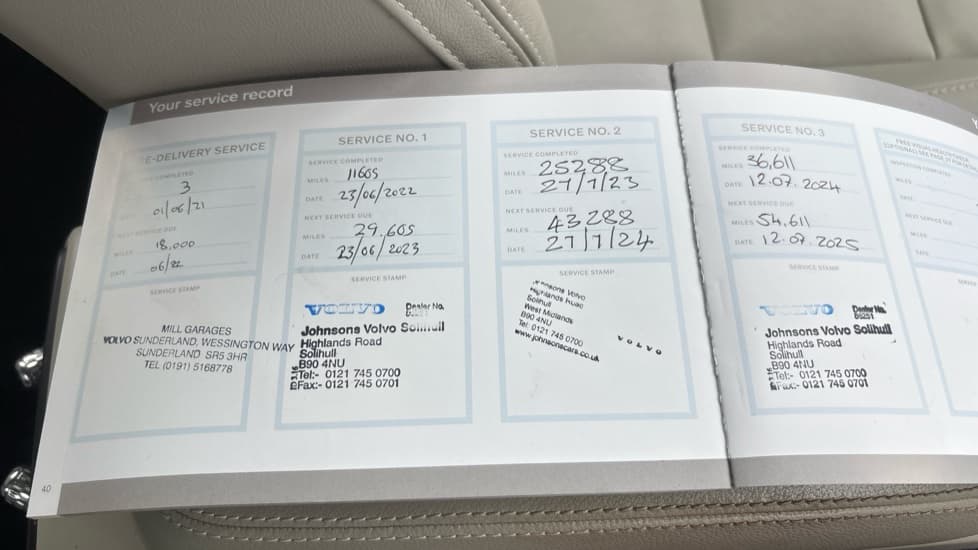 Your service record
E-DELIVERY SERVICE
COMPLETED
3
01/06/21
NEXT SERVICE DUE
MILES 18,000
DATE 06/22
SERVICE STAMP
MILL GARAGES
VOLVO SUNDERLAND, WESSINGTON WAY
SUNDERLAND SR5 3HR
TEL (0191) 5168778
SERVICE NO. 1
SERVICE COMPLETED
MILES 11605
DATE 23/06/2022
NEXT SERVICE DUE
MILES 29.605
DATE 23/06/2023
SERVICE STAMP
VOLVO Dealer No.
Johnsons Volvo Solihull
Highlands Road
Solihull
B90 4NU
Tel:- 0121 745 0700
Fax:- 0121 745 0701
SERVICE NO. 2
SERVICE COMPLETED
MILES 25288
DATE 27/7/23
NEXT SERVICE DUE
MILES 43288
DATE 27/7/24
SERVICE STAMP
Johnsons Volvo
Highlands Road
Solihull
West Midlands
B90 4NU
Tel: 0121 745 0700
www.johnsonscars.co.uk
VOLVO
SERVICE NO. 3
SERVICE COMPLETED
MILES 36,611
DATE 12.07.2024
NEXT SERVICE DUE
MILES 54,611
DATE 12.07.2025
SERVICE STAMP
VOLVO Dealer No.
Johnsons Volvo Solihull
Highlands Road
Solihull
B90 4NU
Tel:- 0121 745 0700
Fax:- 0121 745 0701
FREE VISUAL HEALTH
(OPTIONAL) SEE PAGE
INSPECTION COMPLETED
MILES
DATE
NEXT SERVICE DUE
MILES
DATE
SERVICE
40